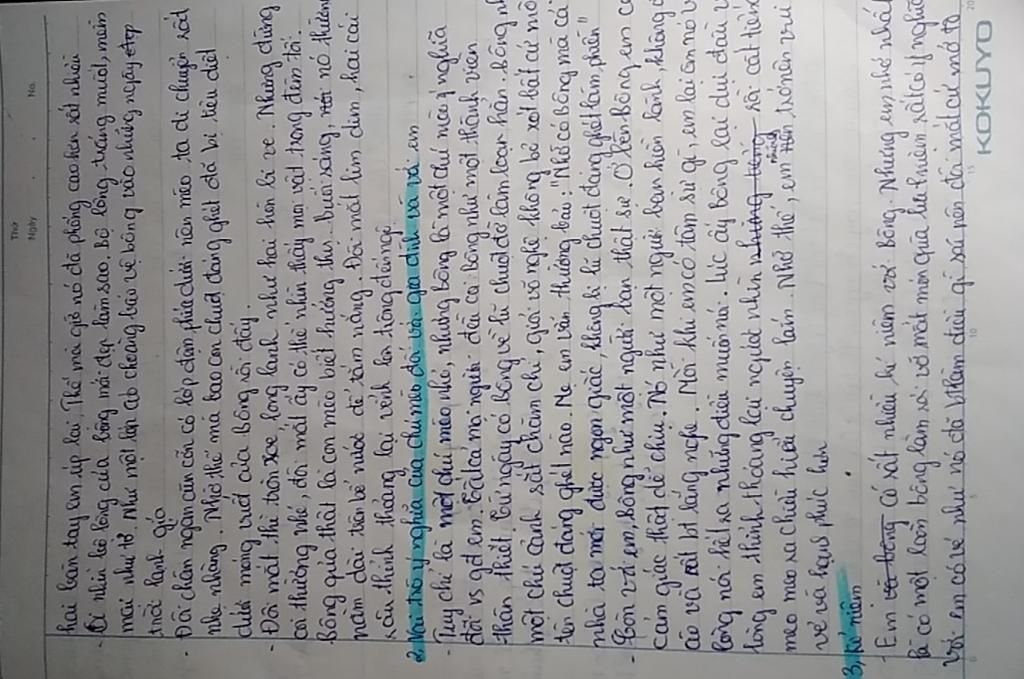 Thứ
Ngày
No.
hai bàn tay em áp lại. Thế mà giờ nó đã phổng cao hơn rất nhiều
nhìn bộ lông của bông mới đẹp làm sao. Bộ lông trắng muốt, mềm
mại như tơ. Như một lớp áo choàng bảo vệ bông vào những ngày đẹp
trời lạnh gió
- Đôi chân ngắn cũn có lớp đệm phía dưới nên mèo ta di chuyển rất
nhẹ nhàng. Nhờ thế mà bao con chuột đáng ghét đã bị tiêu diệt
dưới móng vuốt của bông rồi đấy.
- Đôi mắt thì tròn xoe long lanh như hai hòn bi ve. Nhưng đừng
coi thường nhé, đôi mắt ấy có thể nhìn thấy mọi vật trong đêm tối.
Bông quả thật là con mèo biết hưởng thụ. buổi sáng nó thường
nằm dài trên bể nước để tắm nắng. Đôi mắt lim dim, hai cái
râu thỉnh thoảng lại vểnh lên trông đến ngộ
2. Vai trò ý nghĩa của chú mèo đối với gia đình và với em
- Tuy chỉ là một chú mèo nhỏ, nhưng bông là một chú mèo ý nghĩa
đối vs gđ em. Tất cả mọi người đều coi bông như một thành viên
thân thiết. Từ ngày có bông về lũ chuột đỡ làm loạn hẳn. bông như
một chú cảnh sát chăm chỉ, giỏi võ nghệ không bỏ xót bất cứ một
tên chuột đáng ghét nào. Mẹ em vẫn thường bảo: "Nhờ có bông mà cả
nhà ta mới được ngon giấc, không bị lũ chuột đáng ghét làm phiền"
- Còn với em, bông như một người bạn thật sự. Ở bên bông em có
cảm giác thật dễ chịu. Nó như một người bạn hiền lành, không ồn
ào và rất biết lắng nghe. Mỗi khi em có tâm sự gì, em lại ôm nó vào
lòng nói hết ra những điều muốn nói. Lúc ấy bông lại dụi đầu vào
lòng em thỉnh thoảng lại ngước nhìn những tiếng rồi cất tiếng
meo meo ra chiều hiểu chuyện lắm. Nhờ thế, em trở nên vui
vẻ và hạnh phúc hơn
3, Kỉ niệm
- Em và bông có rất nhiều kỉ niệm với bông. Nhưng em nhớ nhất
là có một lần bông làm rơi vỡ mất món quà lưu niệm rất có ý nghĩa
với em có vẻ như nó đã biết làm điều gì sai nên đôi mắt cứ mở to
KOKUYO